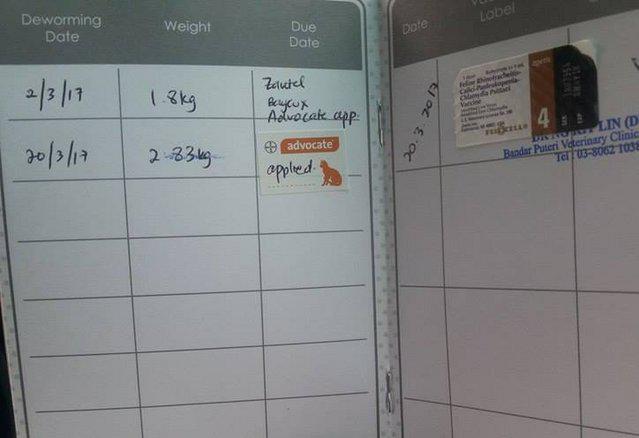 Deworming
Date
Weight
Due
Date
2/3/17
1.8kg
Zantel
Baycox
Advocate app.
20/3/17
2.83kg
advocate
applied.
Date
Label
20.3.2017
Feline Rhinotracheitis-
Calici-Panleukopenia-
Chlamydia Psittaci
Vaccine
4
LIN (D
Bandar Puteri Veterinary Clini
Tel : 03-8062 1038